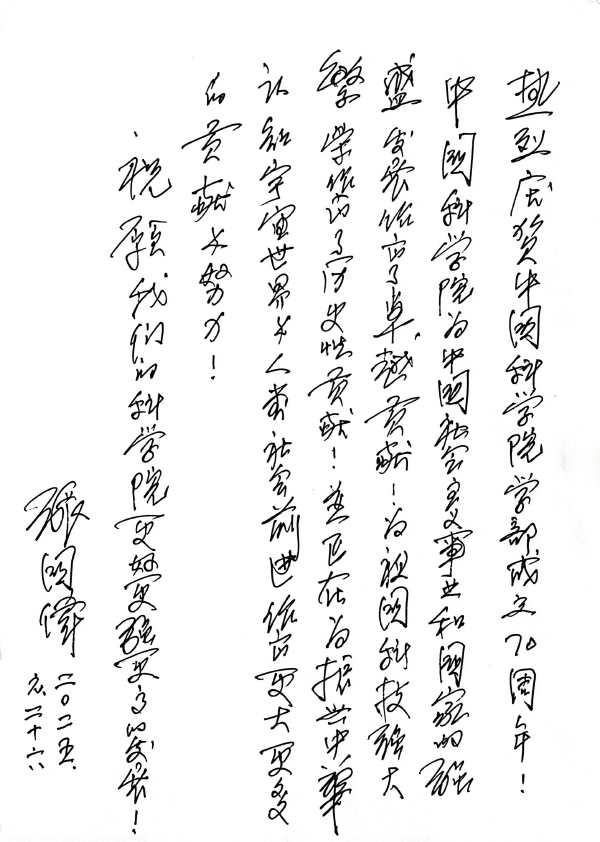 热烈庆贺中国科学院学部成立70周年！
中国科学院为中国社会主义事业和国家的强
盛发展作出了卓越贡献！为祖国科技强大
繁荣作出了历史性贡献！并正在为振兴中华
认知宇宙世界和人类社会前进作出更大更多
的贡献与努力！
祝愿我们的科学院更好更强更高的发展！
张国伟
二〇二五.
六.二十六.